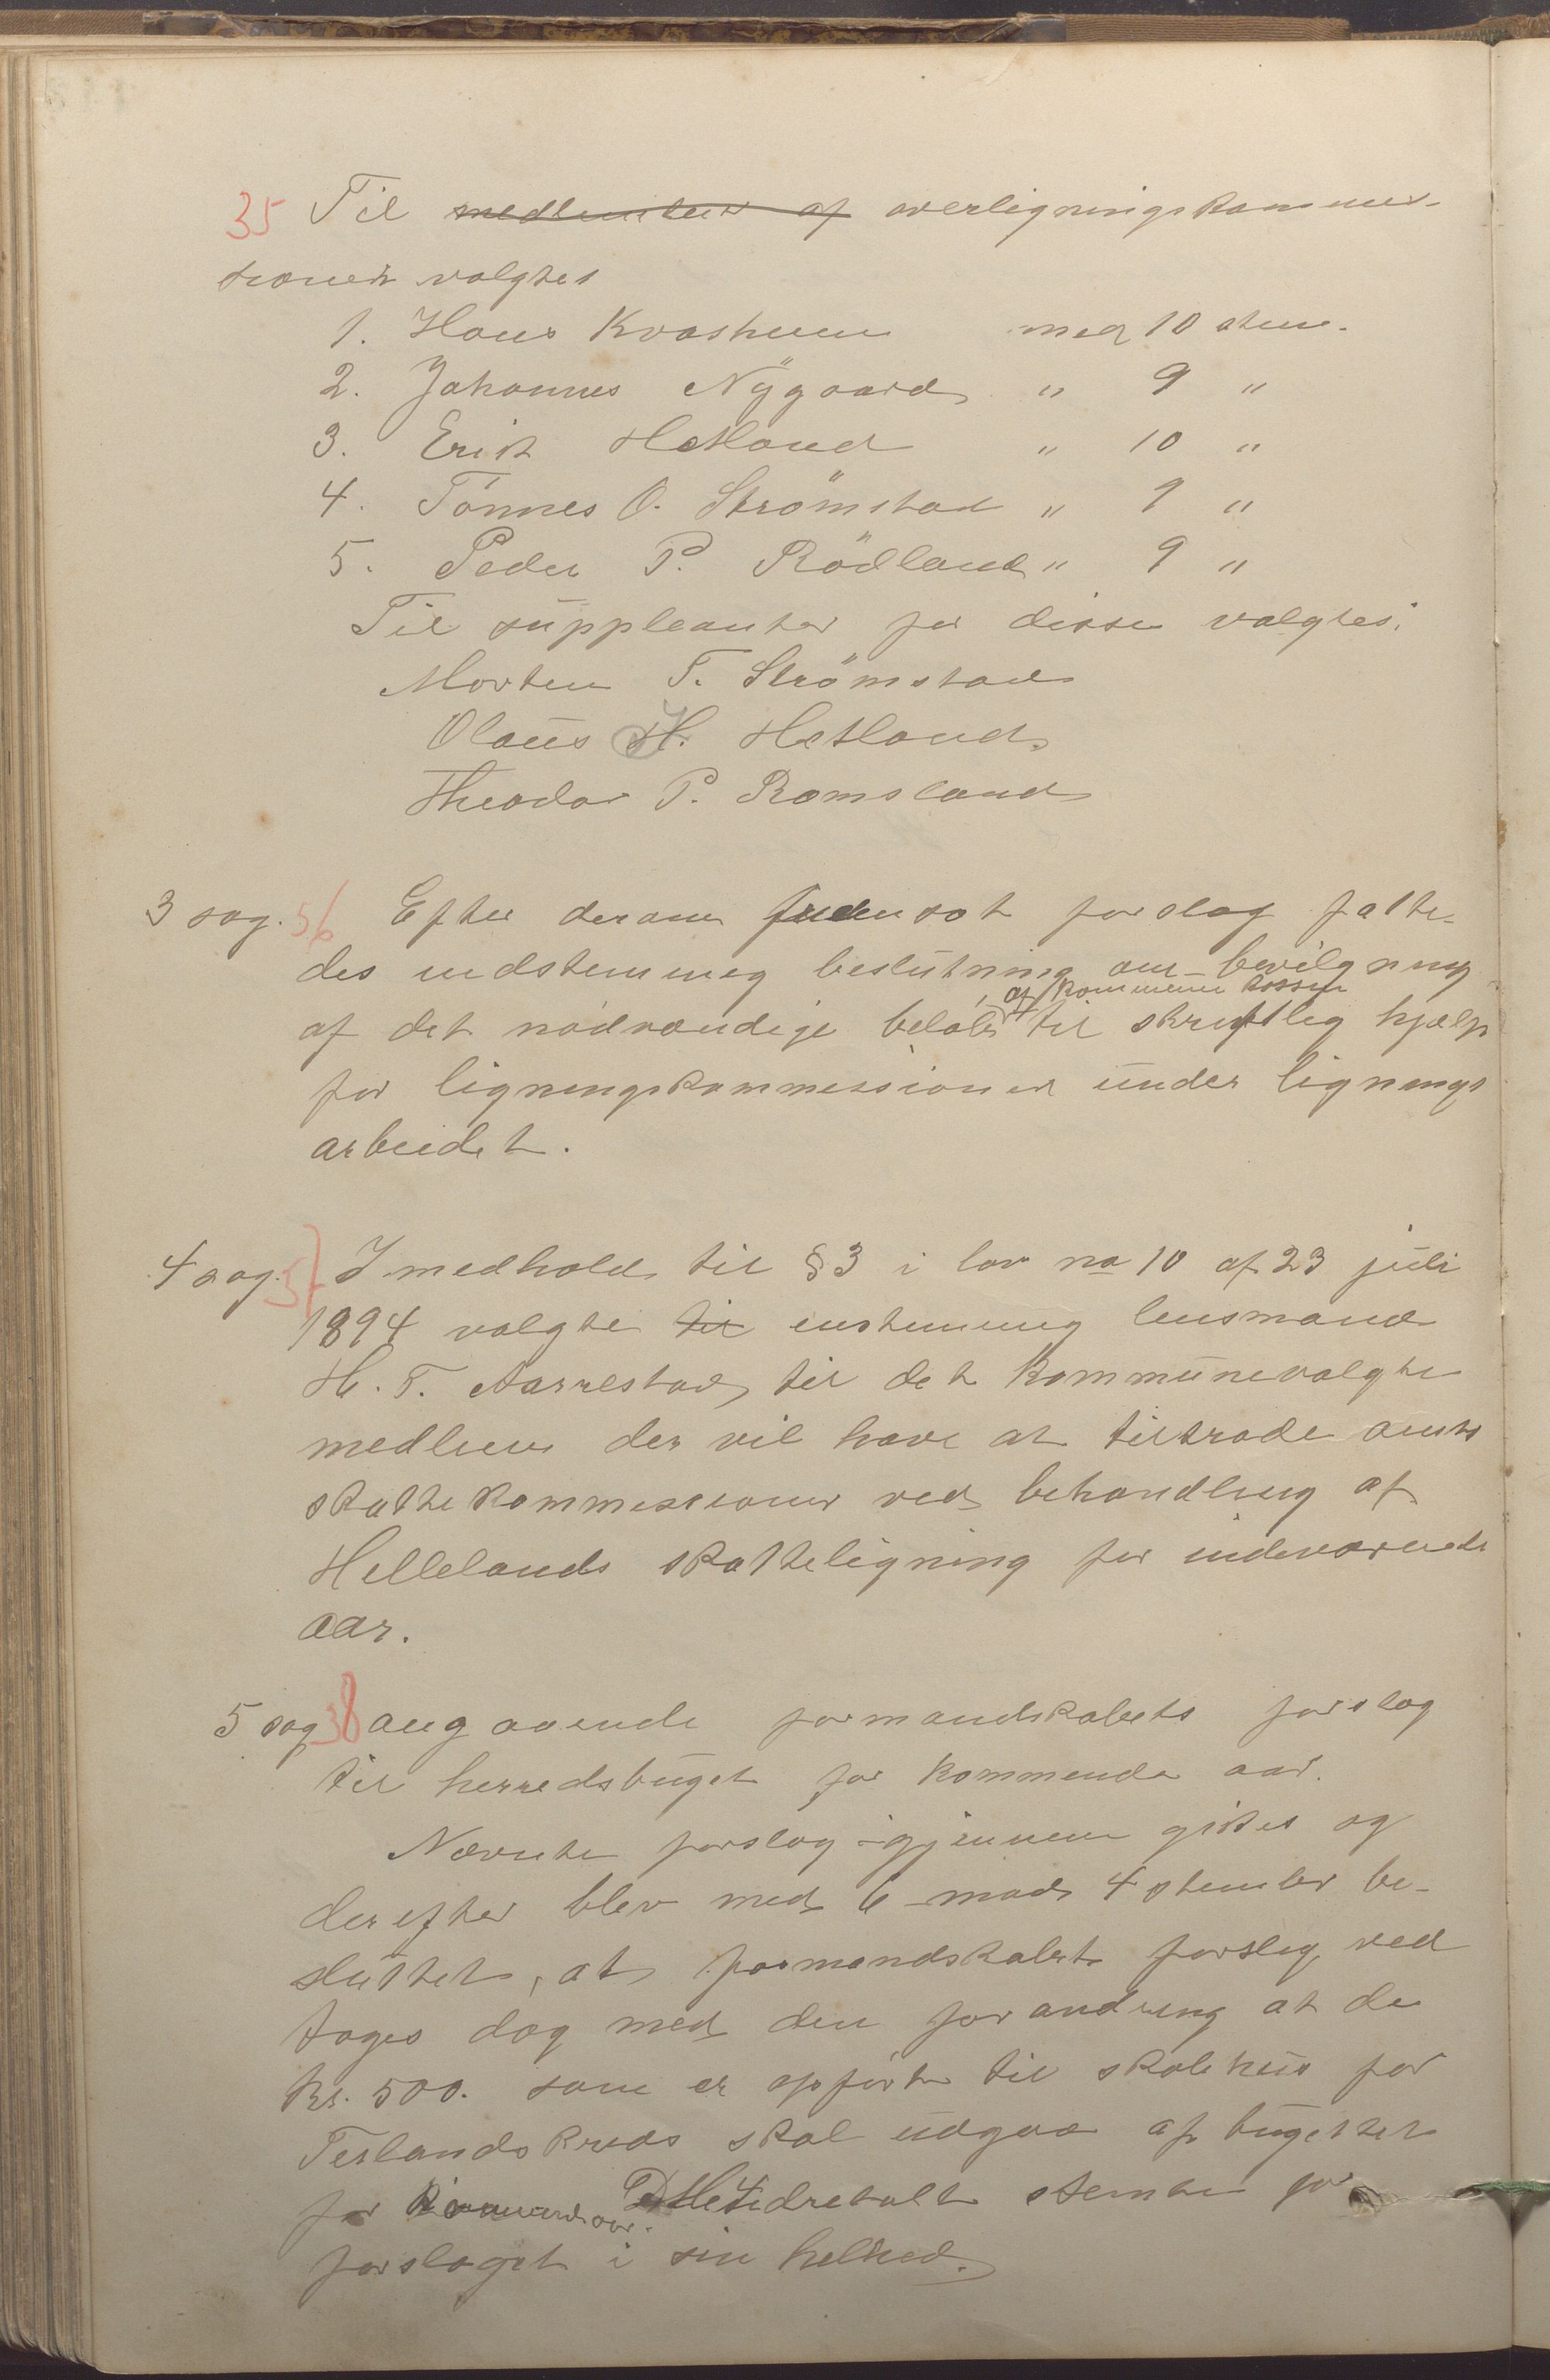 35 Til medlemmer af overligningskommis-
sionen valgtes
1. Hans Kvasheim med 10 stem.
2. Johannes Nÿgaard " 9 "
3. Erik Hetland " 10 "
4. Tönnes O. Strömstad " 9 "
5. Peder P. Rödland " 9 "
Til suppleanter for disse valgtes:
Morten T. Strömstad
Olaus H. Hetland
Theodor P. Ramsland
3 sag. 36 Efter derom fremsat forslag fatte-
des indstemmig beslutning om bevilgning
af kommunekassen
af det nödvændige belöb til skriftlig hjælp
for ligningskommissionen under lignings
arbeidet.
4 sag. 37 I medhold til § 3 i lov no 10 af 23 juli
1894 valgte til enstemmig lensmand
H. T. Aarrestad til det kommunevalgte
medlem der vil have at tiltræde amts
skattekommissionen ved behandling af
Hellelands skatteligning for indeværende
aar.
5 sag 38 angaaende formandskabets forslag
til herredsbuget for kommende aar.
Nævnte forslag igjennem gikes og
derefter blev med 6 mod 4 stemmer be-
sluttet, at formandskabets forslag ved
tages dog med den forandring at de
kr. 500. som er opfört til skolehus for
Teslands kreds skal udgaa af bugettet
for kommende aar. Mindretallet stemte for
forslaget i sin helhed.